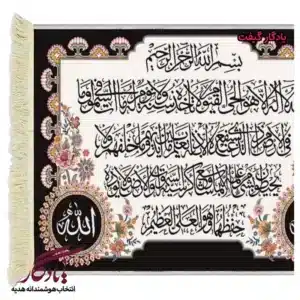 یادگار گیفت
بسم الله الرحمن الرحيم
الله لا اله الا هو الحي القيوم لا تأخذه سنة ولا نوم له ما في السموات وما
في الارض من ذا الذي يشفع عنده الا باذنه يعلم ما بين ايديهم وما خلفهم ولا
يحيطون بشيء من علمه الا بما شاء وسع كرسيه السموات والارض ولا يؤده
حفظهما وهو العلي العظيم
الله
یادگار
انتخاب هوشمندانه هدیه